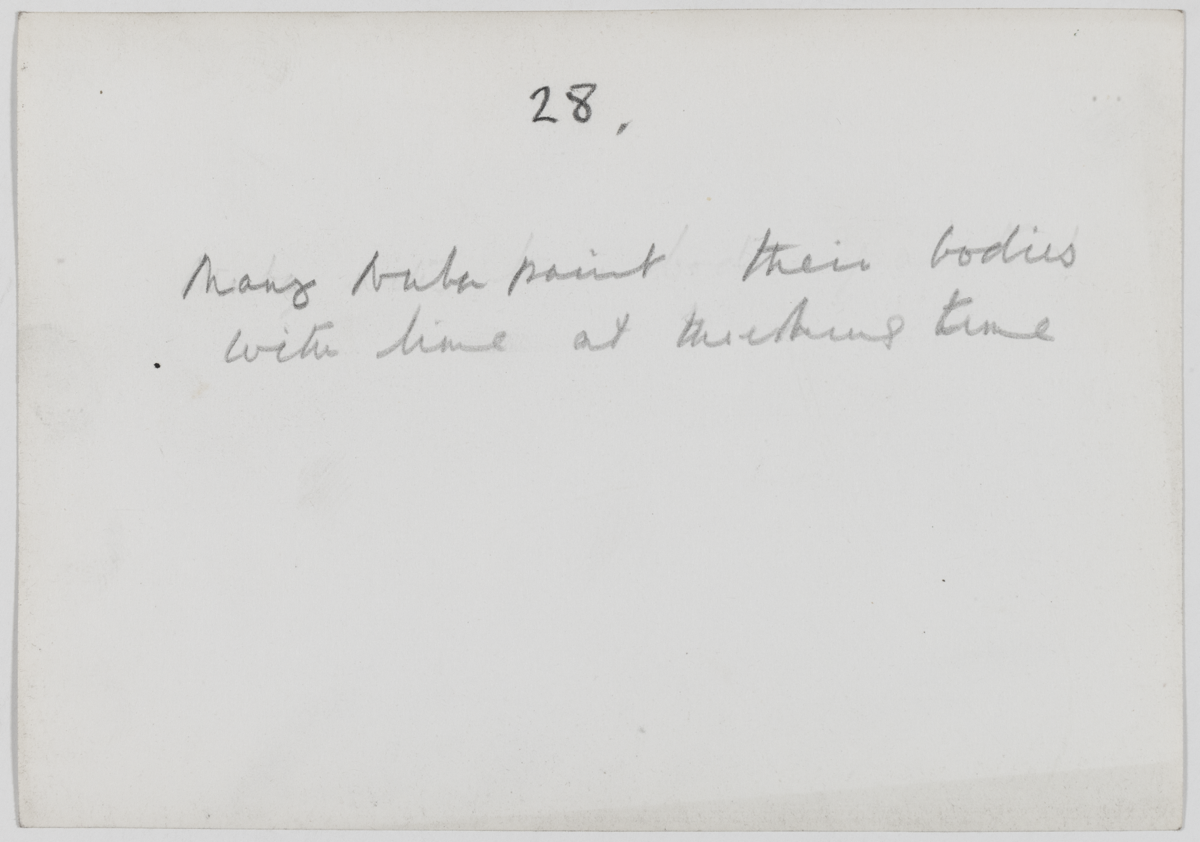 28,
Many Nuba paint their bodies
with lime at threshing time